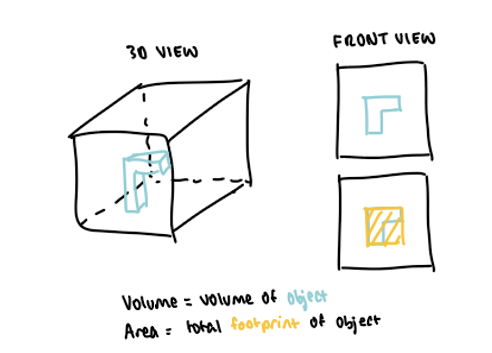 3D VIEW
FRONT VIEW
Volume = volume of object
Area = total footprint of object